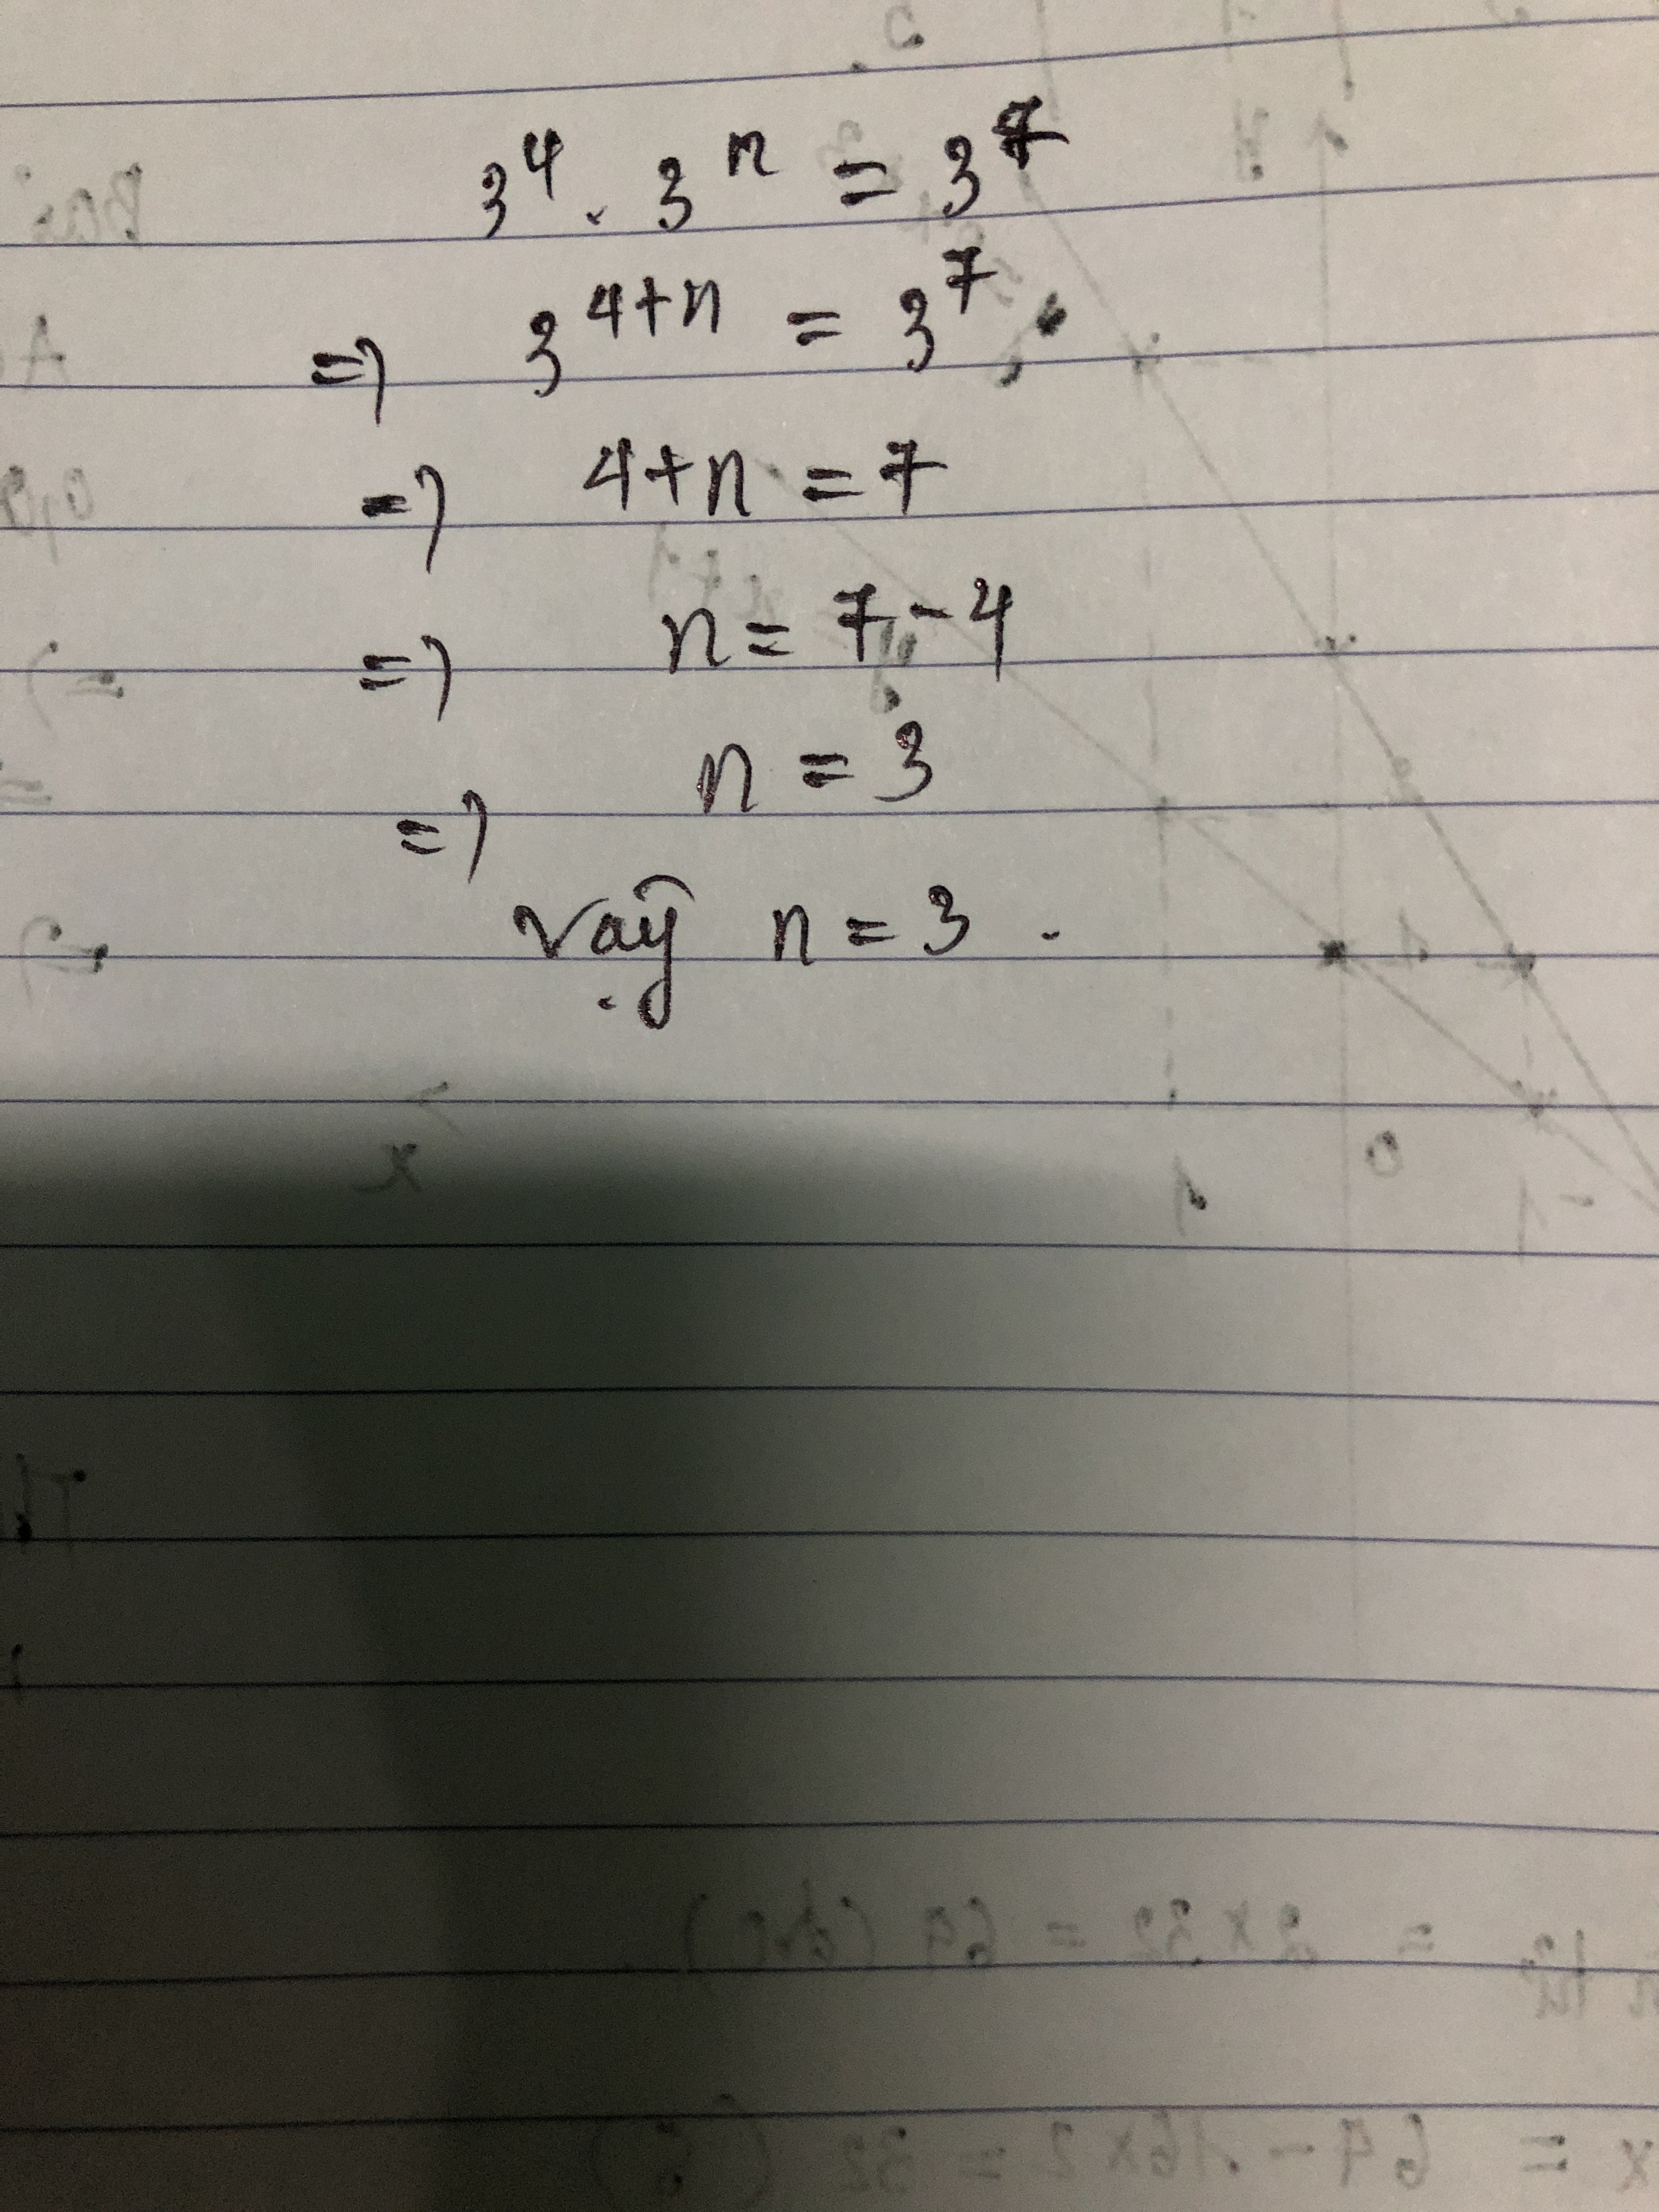 3⁴ . 3ⁿ = 3⁷
=> 3⁴⁺ⁿ = 3⁷
=> 4+n = 7
=> n = 7-4
=> n = 3
Vậy n = 3 .